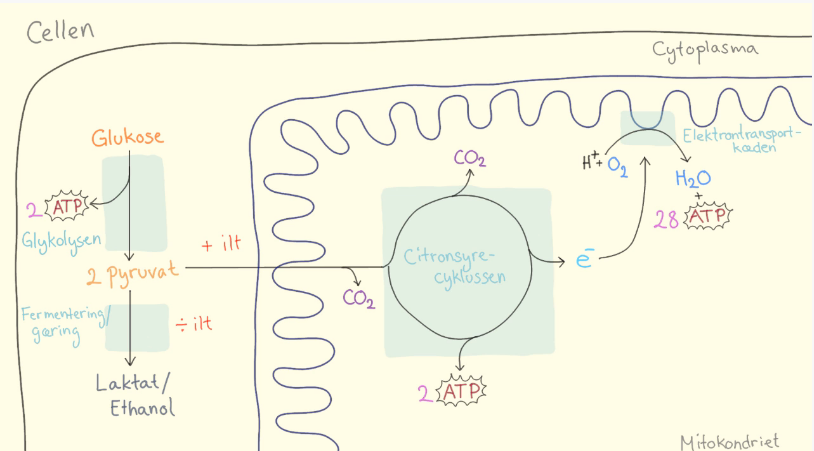 Cellen
Cytoplasma
Glukose
2 ATP
Glykolysen
2 Pyruvat
+ ilt
Fermentering/
gæring
÷ ilt
Laktat/
Ethanol
CO2
CO2
Citronsyre-
cyklussen
2 ATP
e-
H+ + O2
Elektrontransport-
kæden
H2O
+
28 ATP
Mitokondriet